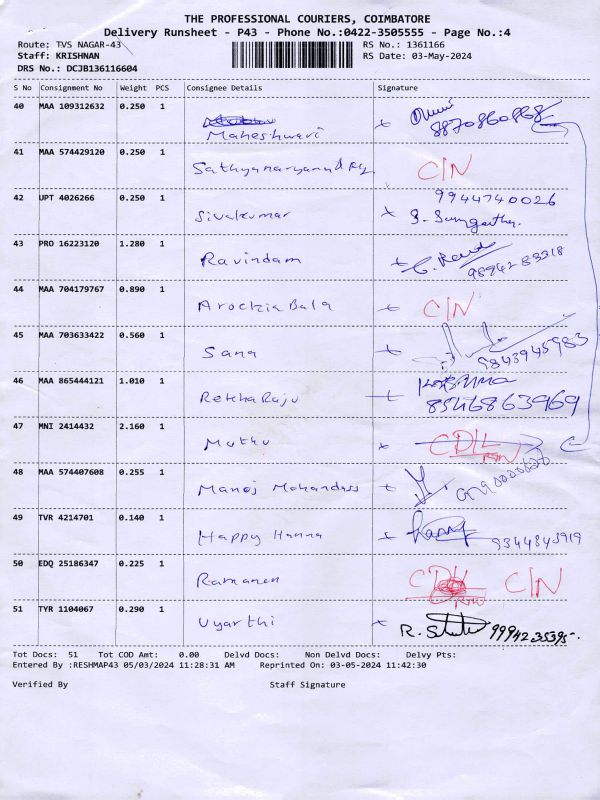 THE PROFESSIONAL COURIERS, COIMBATORE
Delivery Runsheet - P43 - Phone No.:0422-3505555 - Page No.:4
Route: TVS NAGAR-43 RS No.: 1361166
Staff: KRISHNAN RS Date: 03-May-2024
DRS No.: DCJB136116604
S No Consignment No Weight PCS Consignee Details Signature
40 MAA 109312632 0.250 1
Maheshwari 8870860868
41 MAA 574429120 0.250 1
C/N
42 UPT 4026266 0.250 1 9944740026
Sivakumar
43 PRO 16223120 1.280 1
Ravindam 9894283318
44 MAA 704179767 0.890 1
Arockia Bala C/N
45 MAA 703633422 0.560 1
Sana 9843945983
46 MAA 865444121 1.010 1
Rekha Raju 8546863969
47 MNI 2414432 2.160 1
Muthu
48 MAA 574407608 0.255 1
Manoj Mohandass
49 TVR 4214701 0.140 1
Happy Hanna 9344843919
50 EDQ 25186347 0.225 1
Ramanan C/N
51 TYR 1104067 0.290 1
Uyarthi 9994235395-
Tot Docs: 51 Tot COD Amt: 0.00 Delvd Docs: Non Delvd Docs: Delvy Pts:
Entered By :RESHMAP43 05/03/2024 11:28:31 AM Reprinted On: 03-05-2024 11:42:30
Verified By Staff Signature